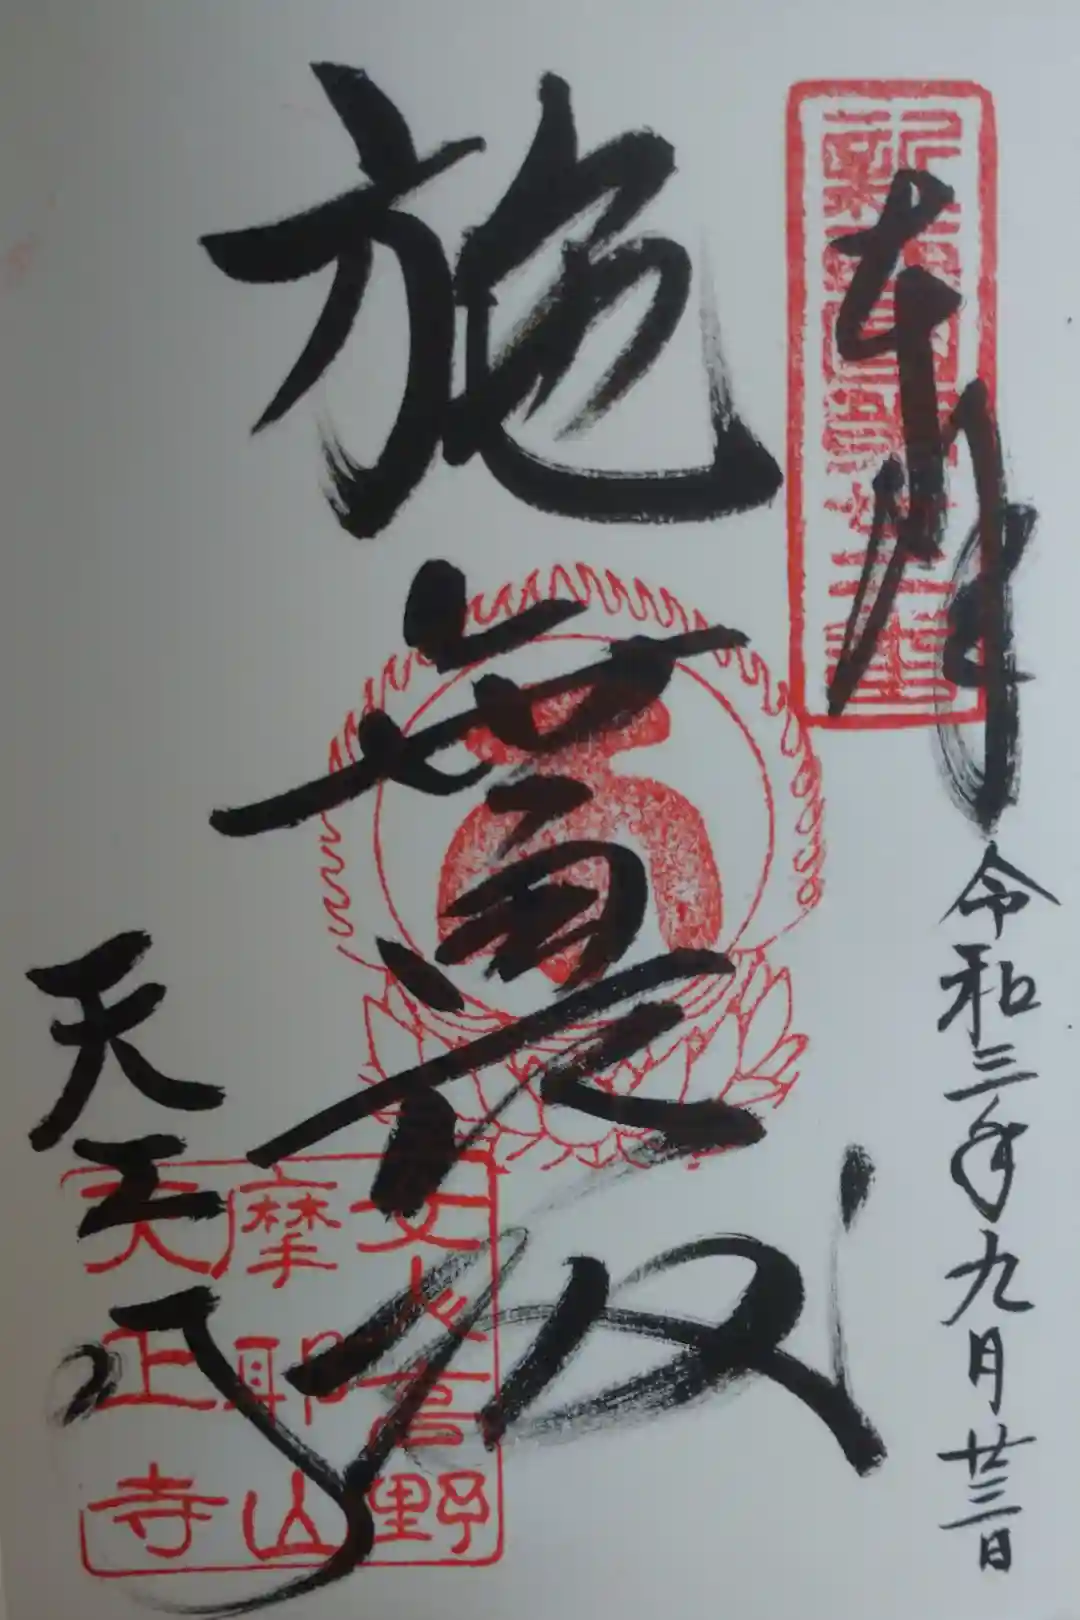 奉拝
令和三年九月廿三日
施無畏殿
天上寺
女人高野
摩耶山
天上寺